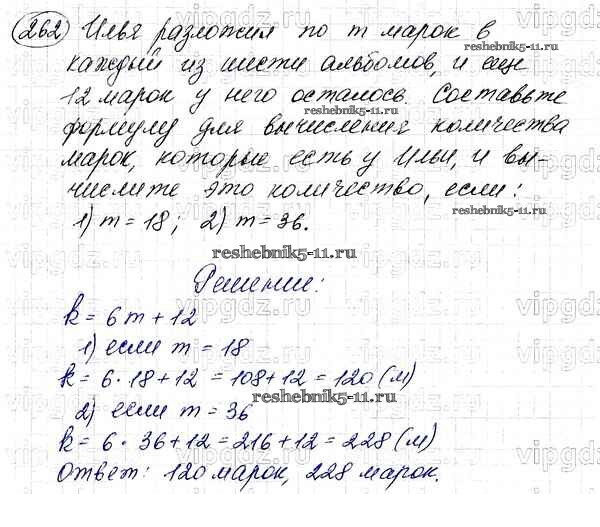 262) Илья разложил по m марок в
каждый из шести альбомов, и еще
12 марок у него осталось. Составьте
формулу для вычисления количества
марок, которые есть у Ильи, и вы-
числите это количество, если:
1) m = 18; 2) m = 36.
Решение:
k = 6m + 12
1) если m = 18
k = 6 · 18 + 12 = 108 + 12 = 120 (м)
2) если m = 36
k = 6 · 36 + 12 = 216 + 12 = 228 (м)
Ответ: 120 марок, 228 марок.
reshebnik5-11.ru
reshebnik5-11.ru
reshebnik5-11.ru
reshebnik5-11.ru
vipgdz.ru